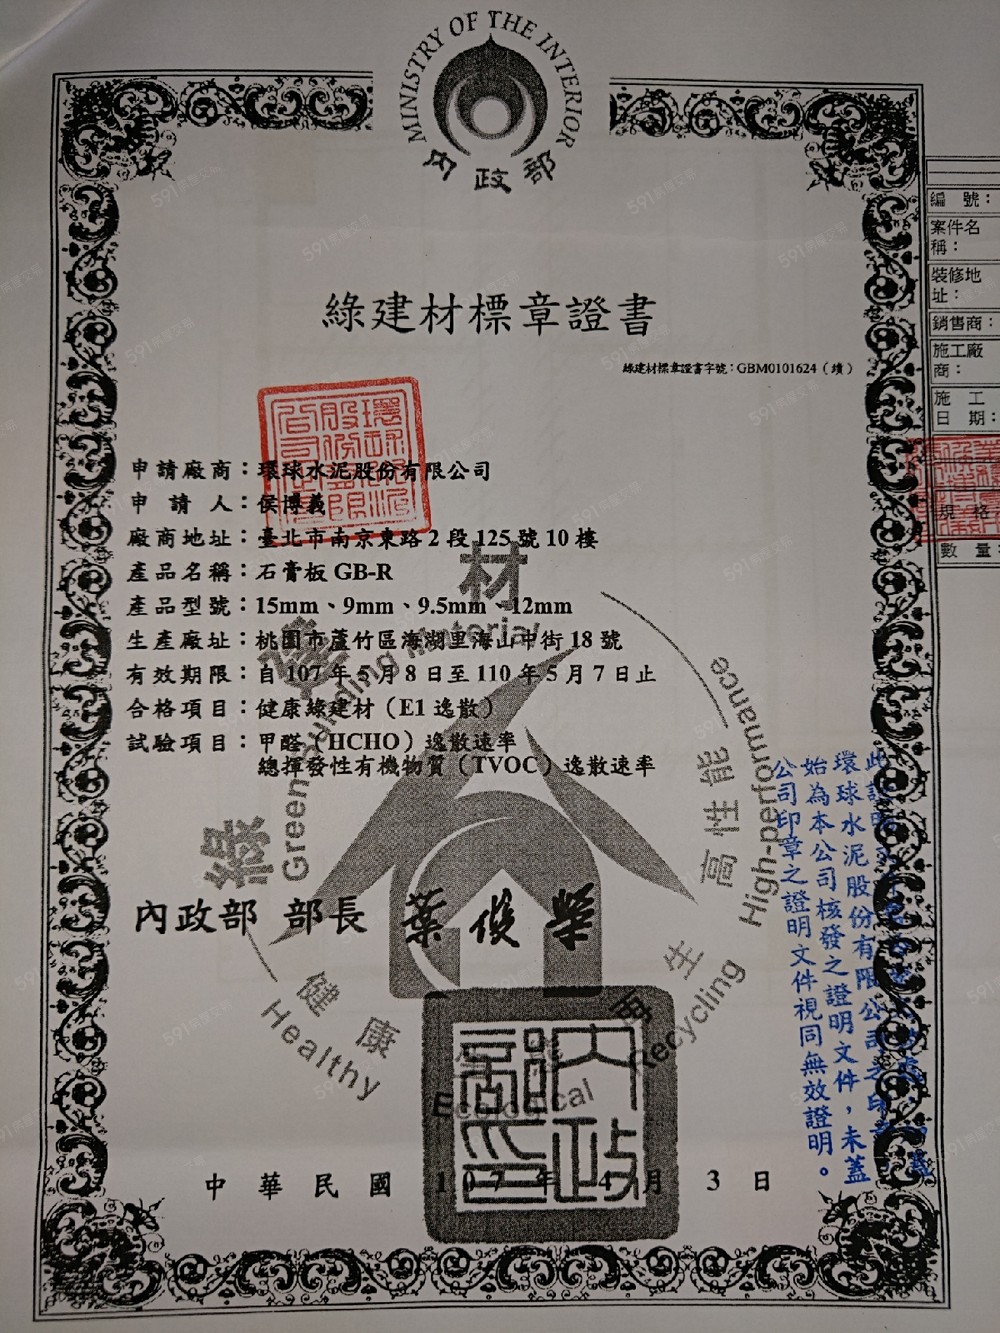 MINISTRY OF THE INTERIOR
內政部
綠建材標章證書
綠建材標章證書字號：GBM0101624（續）
申請廠商：環球水泥股份有限公司
申請人：侯博義
廠商地址：臺北市南京東路2段125號10樓
產品名稱：石膏板 GB-R
產品型號：15mm、9mm、9.5mm、12mm
生產廠址：桃園市蘆竹區海湖里海山中街18號
有效期限：自107年5月8日至110年5月7日止
合格項目：健康綠建材（E1逸散）
試驗項目：甲醛（HCHO）逸散速率
總揮發性有機物質（TVOC）逸散速率
內政部 部長 葉俊榮
中華民國107年4月3日
綠建材
Green Building Material
高性能
High-performance
再生
Recycling
Ecological
健康
Healthy
內政部印
環球水泥股份有限公司之印
始為本公司核發之證明文件，未蓋
公司印章之證明文件視同無效證明。
編號：
案件名稱：
裝修地址：
銷售商：
施工廠商：
施工日期：
規格
數量
591房屋交易